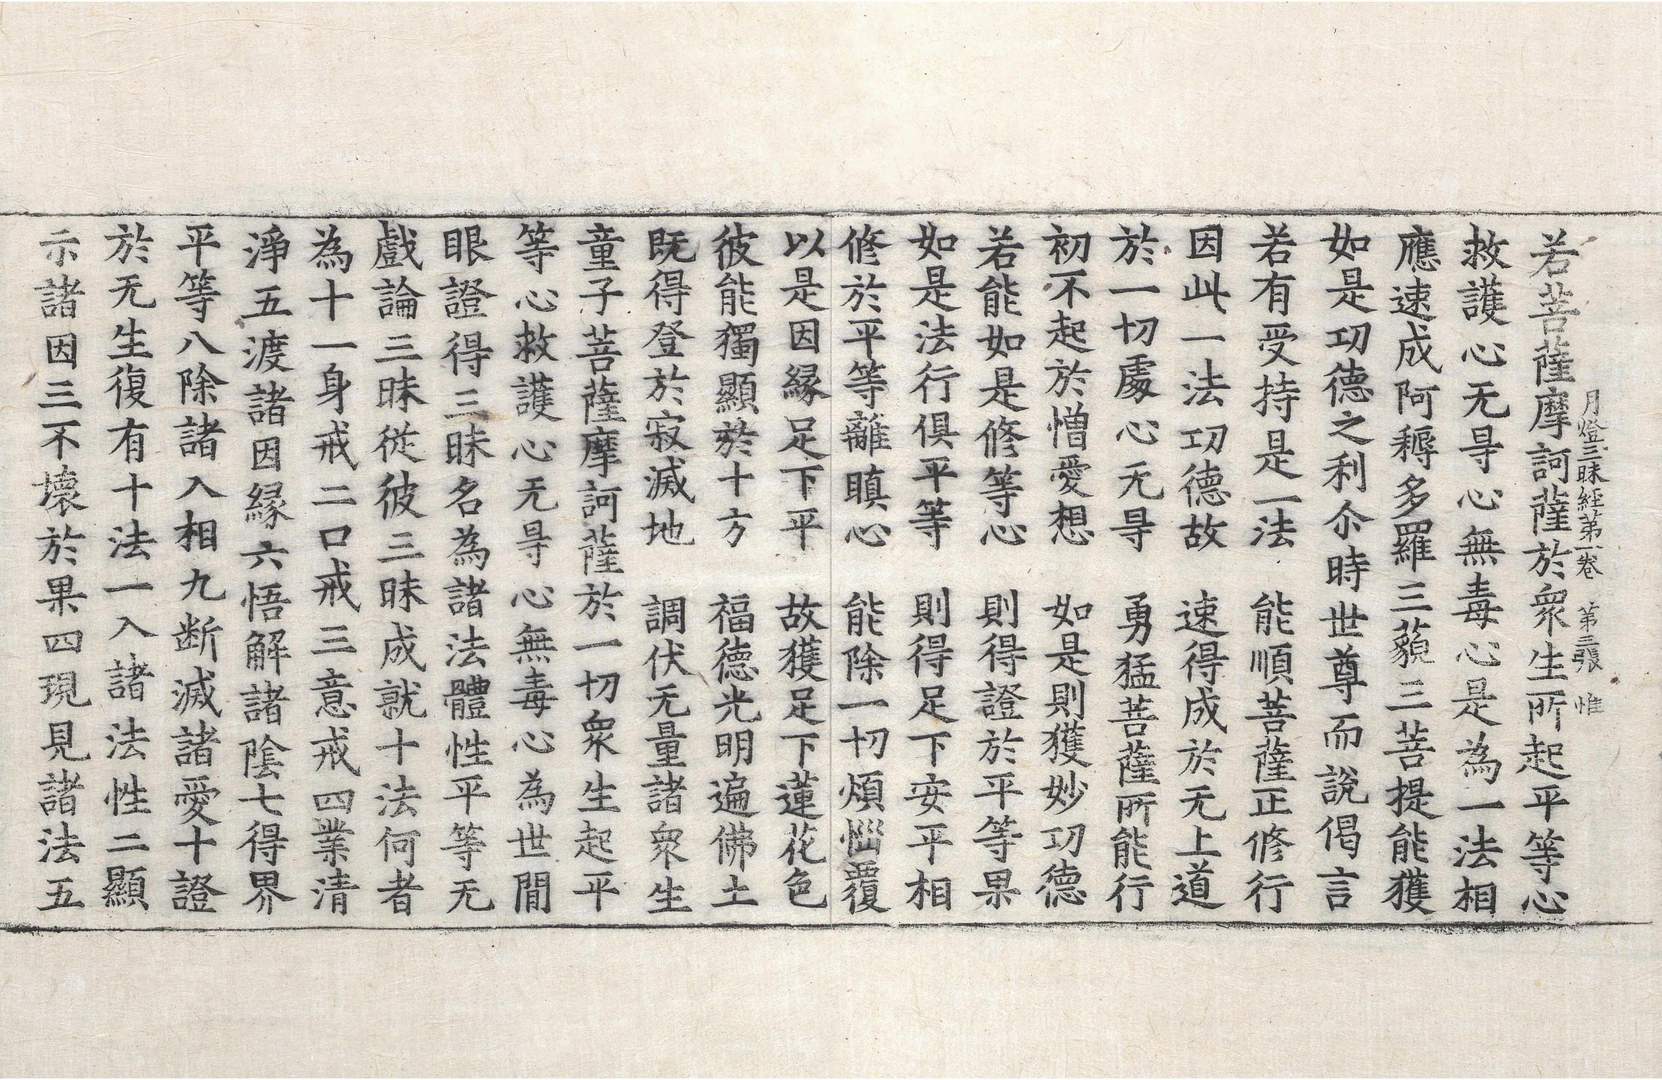 月燈三昧經苐一卷　苐三張　惟
若菩薩摩訶薩於衆生所起平等心
救護心无㝵心無毒心是為一法相
應速成阿耨多羅三藐三菩提能獲
如是功德之利尒時世尊而說偈言
若有受持是一法　能順菩薩正修行
因此一法功德故　速得成於无上道
於一切處心无㝵　勇猛菩薩所能行
初不起於憎愛想　如是則獲妙功德
若能如是修等心　則得證於平等果
如是法行俱平等　則得足下安平相
修於平等離瞋心　能除一切煩惱覆
以是因縁足下平　故獲足下蓮花色
彼能獨顯於十方　福德光明遍佛土
既得登於寂滅地　調伏无量諸衆生
童子菩薩摩訶薩於一切衆生起平
等心救護心无㝵心無毒心為世間
眼證得三昧名為諸法體性平等无
戲論三昧從彼三昧成就十法何者
為十一身戒二口戒三意戒四業清
淨五渡諸因縁六悟解諸陰七得界
平等八除諸入相九断滅諸愛十證
於无生復有十法一入諸法性二顯
示諸因三不壞於果四現見諸法五